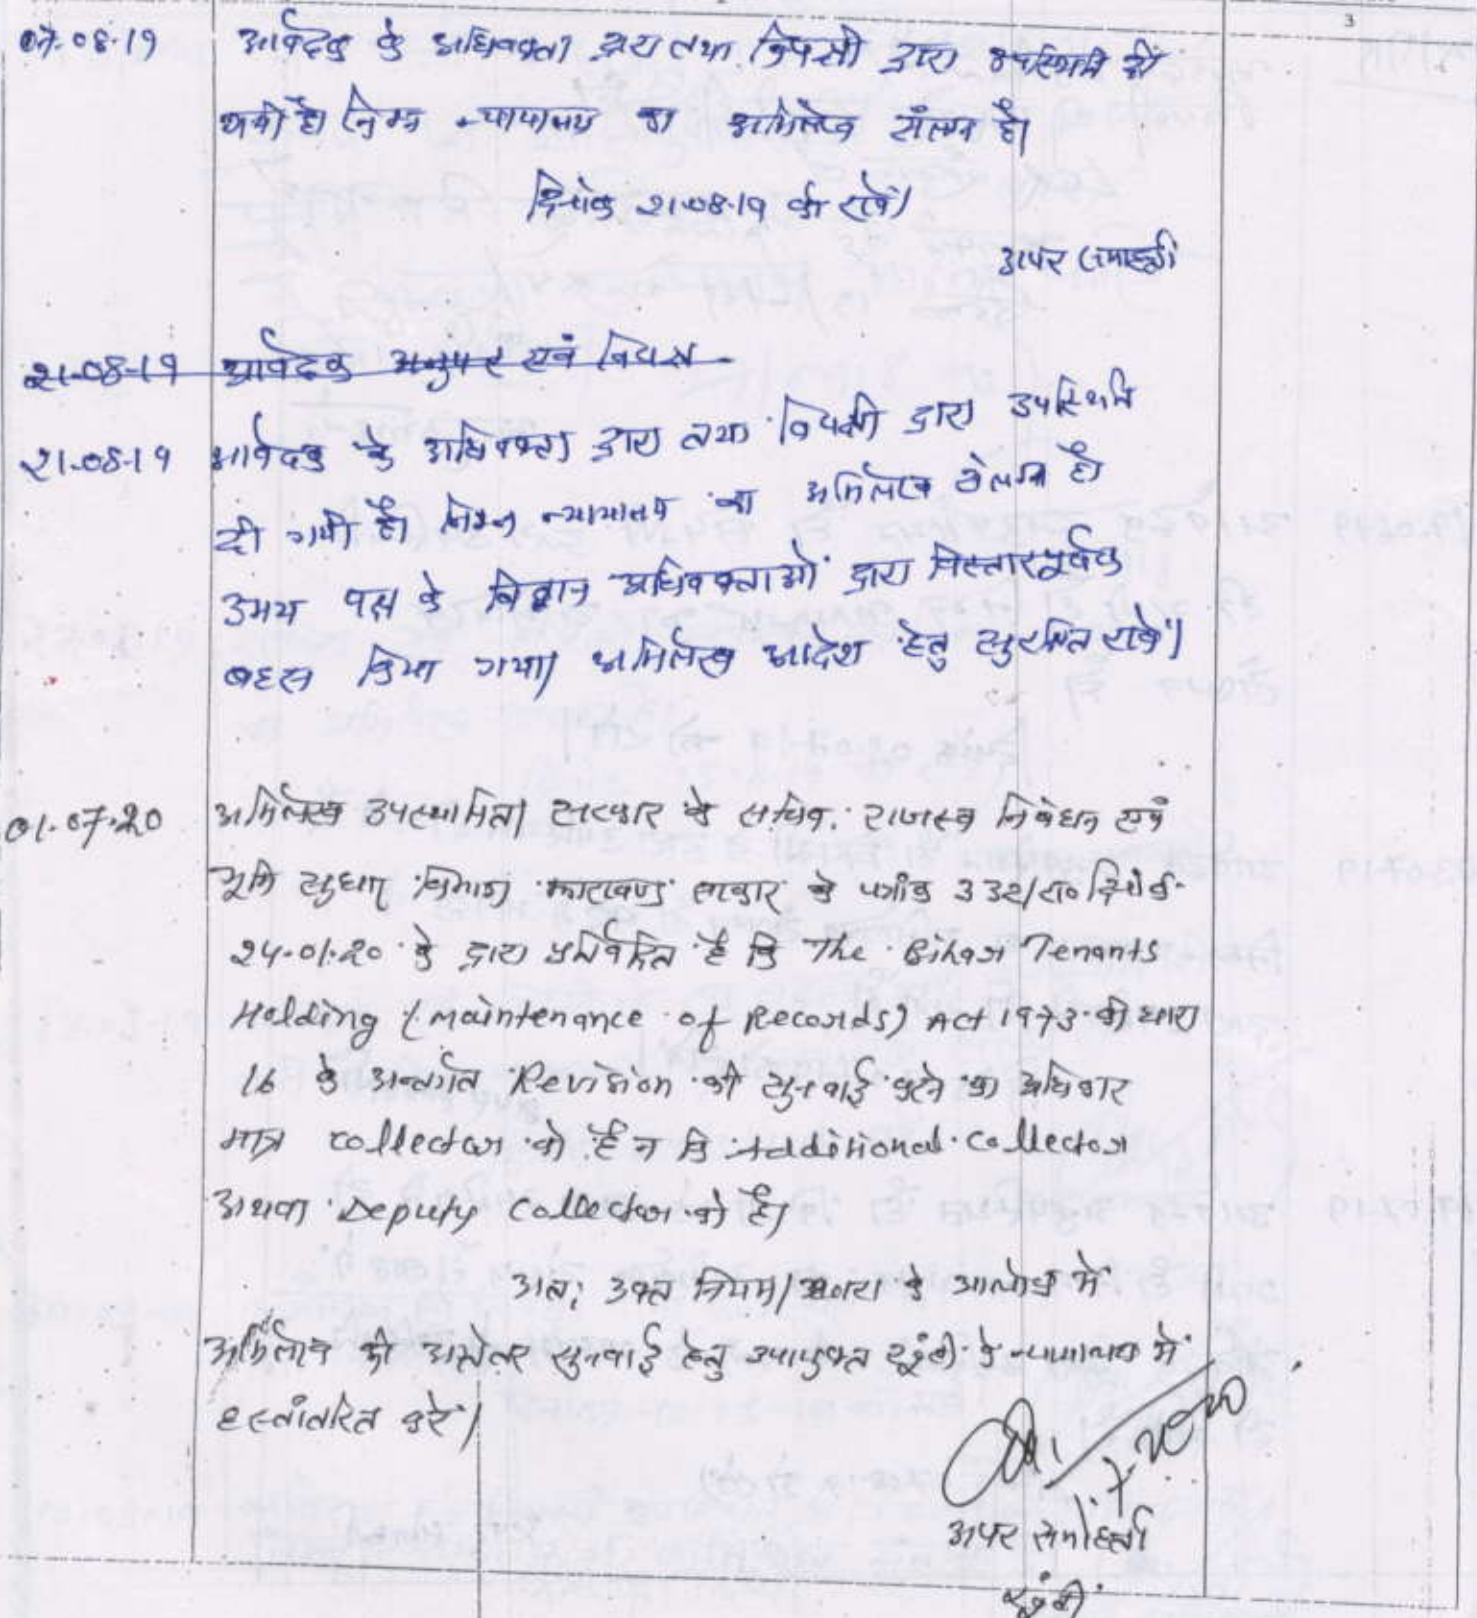 3
07-08-19 आवेदक के अधिवक्ता द्वारा तथा विपक्षी द्वारा उपस्थिति दी
गयी है। निम्न न्यायालय का अभिलेख संलग्न है।
दिनांक 21-08-19 को रखें।
अपर समाहर्ता
21-08-19 आवेदक अनुपस् एवं विपक्ष
21-08-19 आवेदक के अधिवक्ता द्वारा तथा विपक्षी द्वारा उपस्थिति
दी गयी है। निम्न न्यायालय का अभिलेख संलग्न है।
उभय पक्ष के विद्वान अधिवक्ताओं द्वारा विस्तारपूर्वक
बहस किया गया। अभिलेख आदेश हेतु सुरक्षित रखें।
01.07.20 अभिलेख उपस्थापित। सरकार के सचिव, राजस्व निबंधन एवं
भूमि सुधार विभाग झारखण्ड सरकार के पत्रांक 332/रा० दिनांक-
24-01-20 के द्वारा प्रतिवेदित है कि The Bihar Tenants
Holding (maintenance of Records) Act 1973 की धारा
16 के अन्तर्गत Revision की सुनवाई करने का अधिकार
मात्र collector को है न कि Additional Collector
अथवा Deputy Collector को है।
अतः उक्त नियम/धारा के आलोक में
अभिलेख को अग्रेतर सुनवाई हेतु उपायुक्त खूंटी के न्यायालय में
हस्तांतरित करें।
1.7.2020
अपर समाहर्ता
खूंटी